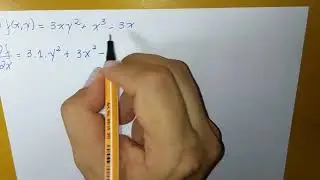 f(x,x) = 3xy² + x³ - 3x
∂f/∂x = 3.1.y² + 3x² -